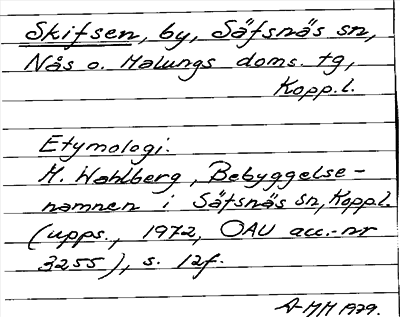 Skifsen, by, Säfsnäs sn,
Nås o. Malungs doms. tg,
Kopp.l.
Etymologi.
M. Wahlberg, Bebyggelse-
namnen i Säfsnäs sn, Kopp.l.
(upps., 1972, OAU acc.-nr
3255), s. 12f.
A-MM 1979.